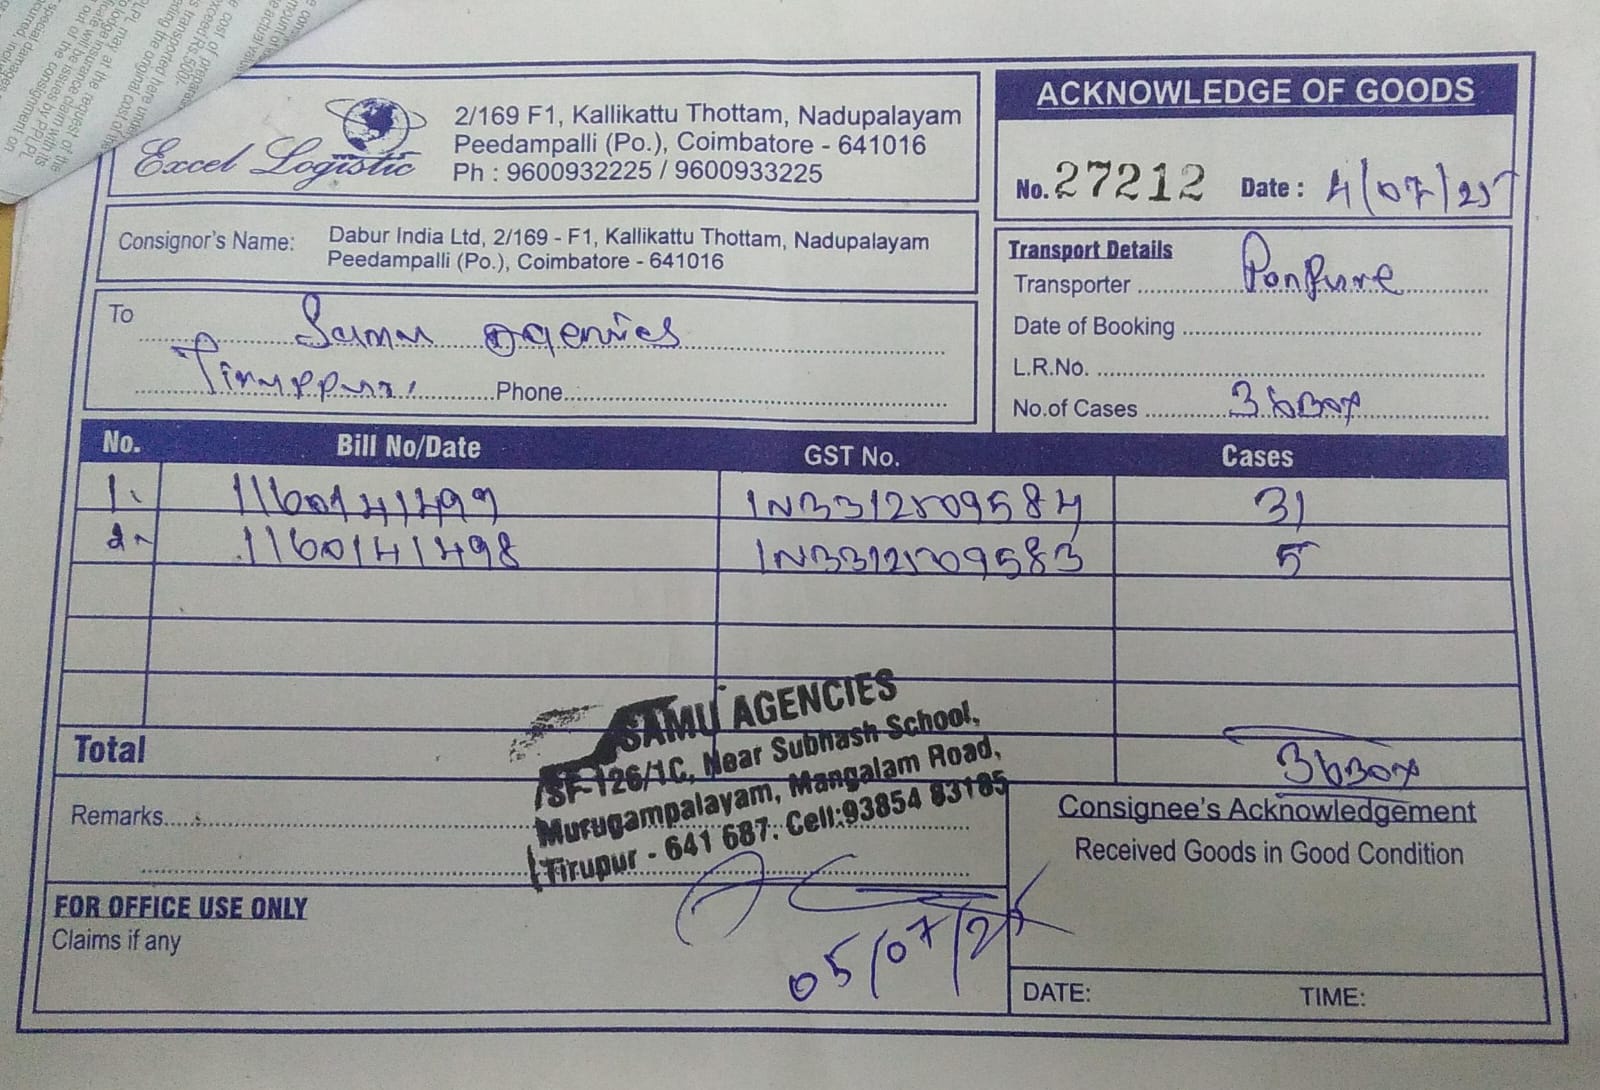 Excel Logistic
2/169 F1, Kallikattu Thottam, Nadupalayam
Peedampalli (Po.), Coimbatore - 641016
Ph : 9600932225 / 9600933225
ACKNOWLEDGE OF GOODS
No. 27212 Date : 4/07/25
Consignor's Name: Dabur India Ltd, 2/169 - F1, Kallikattu Thottam, Nadupalayam
Peedampalli (Po.), Coimbatore - 641016
Transport Details
Transporter Ponpure
Date of Booking
L.R.No.
No.of Cases 36Box
To Samu agencies
Tiruppur. Phone
No. Bill No/Date GST No. Cases
1. 1160141499 IN3312509584 31
2. 1160141498 IN3312509583 5
Total 36Box
SAMU AGENCIES
SF-126/1C, Near Subhash School,
Murugampalayam, Mangalam Road,
Tirupur - 641 687. Cell:93854 83185
Remarks
05/07/25
FOR OFFICE USE ONLY
Claims if any
Consignee's Acknowledgement
Received Goods in Good Condition
DATE: TIME: